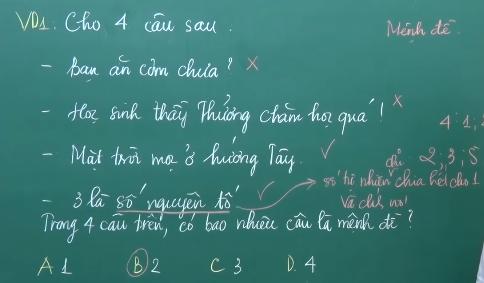 VD1. Cho 4 câu sau.
Mệnh đề
- Bạn ăn cơm chưa? X
- Học sinh thầy Thưởng chăm học quá! X
4: 1;
- Mặt trời mọc ở hướng Tây. ✓
2; 3; 5
- 3 là số nguyên tố ✓
số tự nhiên chia hết cho 1
và chính nó!
Trong 4 câu trên, có bao nhiêu câu là mệnh đề?
A 1 B 2 C 3 D. 4